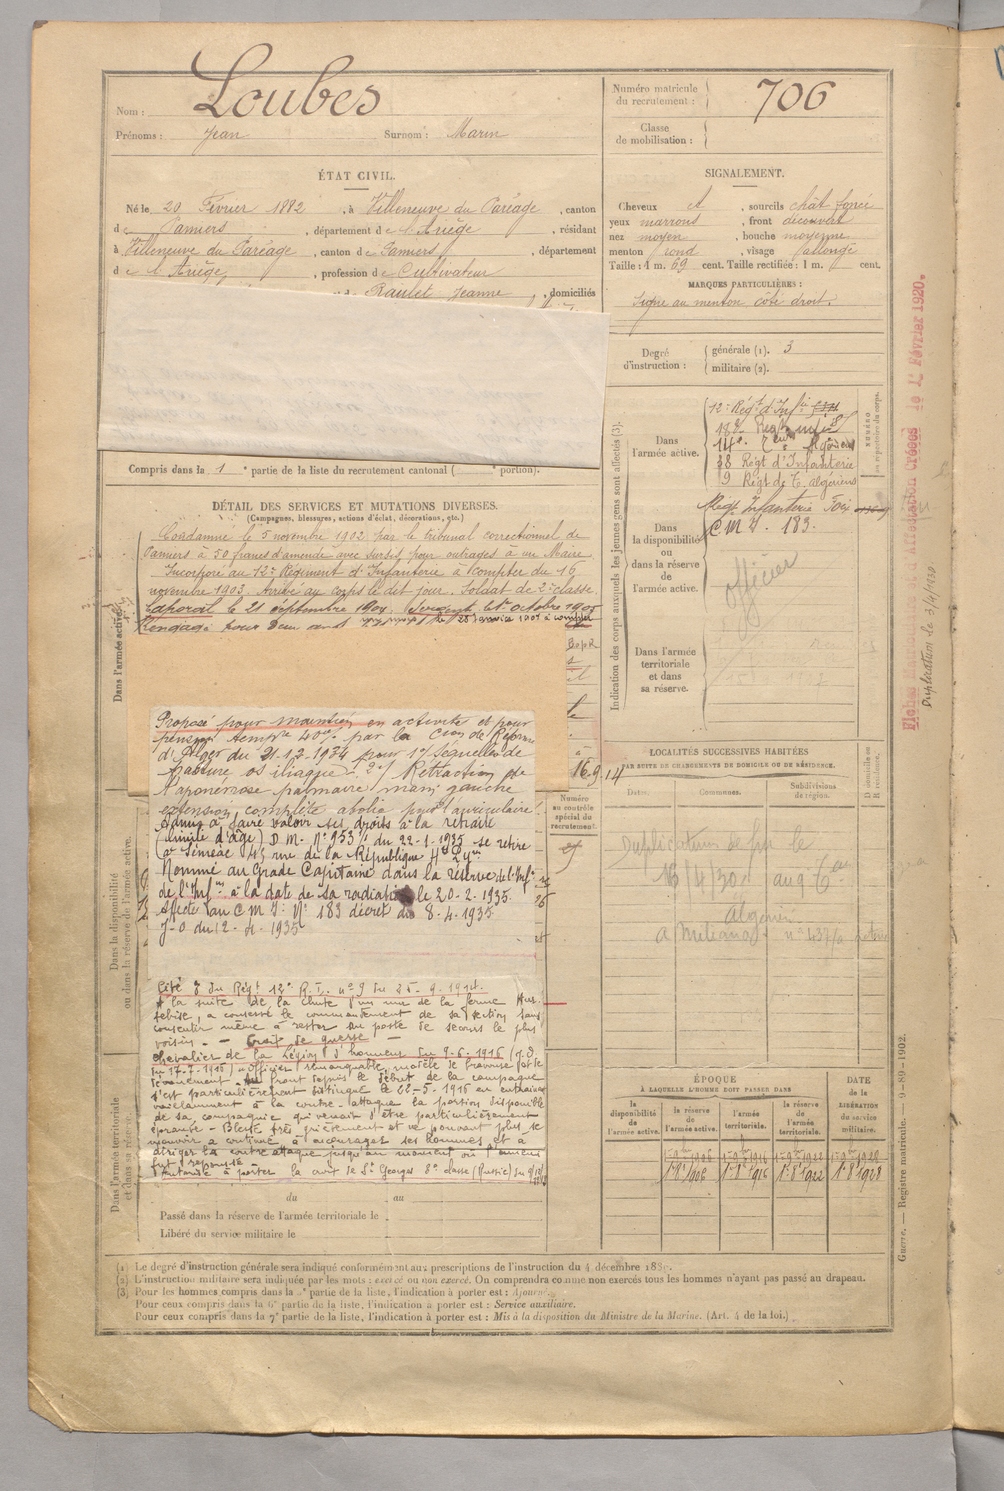 Nom : Loubes
Prénoms : Jean Surnom : Marin
ÉTAT CIVIL.
Né le 20 Février 1882, à Villeneuve du Paréage, canton
de Pamiers, département de l'Ariège, résidant
à Villeneuve du Paréage, canton de Pamiers, département
de l'Ariège, profession de Cultivateur
Raulet Jeanne, domiciliés
Compris dans la 1 e partie de la liste du recrutement cantonal ( portion).
DÉTAIL DES SERVICES ET MUTATIONS DIVERSES.
(Campagnes, blessures, actions d'éclat, décorations, etc.)
Condamné le 5 novembre 1902 par le tribunal correctionnel de
Pamiers à 50 francs d'amende avec sursis pour outrages à un Maire
Incorporé au 12e Régiment d'Infanterie à compter du 16
novembre 1903. Arrivé au corps le dit jour. Soldat de 2e classe.
Caporal le 21 septembre 1904. Sergent le 1er octobre 1905
Rengagé pour deux ans
16.9.14
Proposé pour maintien en activité et pour
pension temp re 40% par la Cion de Réforme
d'Alger du 21.12.1934 pour 1°/ Séquelles de
fracture os iliaque. 2°/ Rétraction de
l'aponévrose palmaire main gauche
extension complète abolie pour l'auriculaire.
Admis à faire valoir ses droits à la retraite
(limite d'âge) D.M. N° 953 du 22-1-1935 se retire
à Séméac 45 rue de la République
Nommé au Grade Capitaine dans la réserve de l'Inf
de l'Inf à la date de sa radiation le 20-2-1935.
Affecté au C M I N° 183 décret du 8.4.1935
J-O du 12-4-1935
Cité à du Régt 12e R.T. n° 9 du 25-9-1914.
A la suite de la chute d'un mur de la ferme Hur
tebise, a conservé le commandement de sa section sans
consentir même à rester au poste de secours le plus
voisin. - Croix de guerre -
Chevalier de la Légion d'honneur du 9-6-1916 (J.O.
du 17-7-1916) - Officier remarquable, modèle de bravoure et de
dévouement. Au front depuis le début de la campagne
s'est particulièrement distingué le 22-5-1916 en entraînant
vaillamment à la contre-attaque la portion disponible
de sa compagnie qui venait d'être particulièrement
éprouvée - Blessé très grièvement et ne pouvant plus se
mouvoir a continué à encourager ses hommes et à
diriger la contre attaque jusqu'au moment où l'ennemi
fut repoussé -
Autorisé à porter la croix de St Georges 4e classe (Russie)
du au
Passé dans la réserve de l'armée territoriale le
Libéré du service militaire le
Dans l'armée active.
Dans la disponibilité
ou dans la réserve de l'armée active.
Dans l'armée territoriale
et dans sa réserve.
Numéro
au contrôle
spécial du
recrutement.
Numéro matricule
du recrutement : 706
Classe
de mobilisation :
SIGNALEMENT.
Cheveux et, sourcils chât foncé
yeux marrons, front découvert
nez moyen, bouche moyenne
menton rond, visage allongé
Taille : 1 m. 69 cent. Taille rectifiée : 1 m. cent.
MARQUES PARTICULIÈRES :
Signe au menton côté droit.
Degré
d'instruction :
générale (1). 3
militaire (2).
Indication des corps auxquels les jeunes gens sont affectés (3).
Dans
l'armée active.
12e Régt d'Infie
14e
38 Régt d'Infanterie
9 Régt de T. algériens
Dans
la disponibilité
ou
dans la réserve
de l'armée
active.
Régt Infanterie Foix
C M I. 183.
officier
Dans l'armée
territoriale
et dans
sa réserve.
NUMÉRO
au répertoire du corps.
LOCALITÉS SUCCESSIVES HABITÉES
PAR SUITE DE CHANGEMENTS DE DOMICILE OU DE RÉSIDENCE.
Dates. Communes. Subdivisions
de région.
D domicile ou
R résidence.
Duplicatum
algérien
à Miliana
ÉPOQUE
À LAQUELLE L'HOMME DOIT PASSER DANS
DATE
de la
LIBÉRATION
du service
militaire.
la
disponibilité
de
l'armée active.
la réserve
de
l'armée active.
l'armée
territoriale.
la réserve
de l'armée
territoriale.
1er 8bre 1906 1er 8bre 1916 1er 8bre 1922 1er 8bre 1928
Fiches Matricules et d'Affectation Créées le 1er Février 1920.
Duplicatum le 3/4/1930
Guerre. — Registre matricule. — 9-89-1902.
(1) Le degré d'instruction générale sera indiqué conformément aux prescriptions de l'instruction du 4 décembre 1889.
(2) L'instruction militaire sera indiquée par les mots : exercé ou non exercé. On comprendra comme non exercés tous les hommes n'ayant pas passé au drapeau.
(3) Pour les hommes compris dans la 5e partie de la liste, l'indication à porter est : Ajourné.
Pour ceux compris dans la 6e partie de la liste, l'indication à porter est : Service auxiliaire.
Pour ceux compris dans la 7e partie de la liste, l'indication à porter est : Mis à la disposition du Ministre de la Marine. (Art. 4 de la loi.)